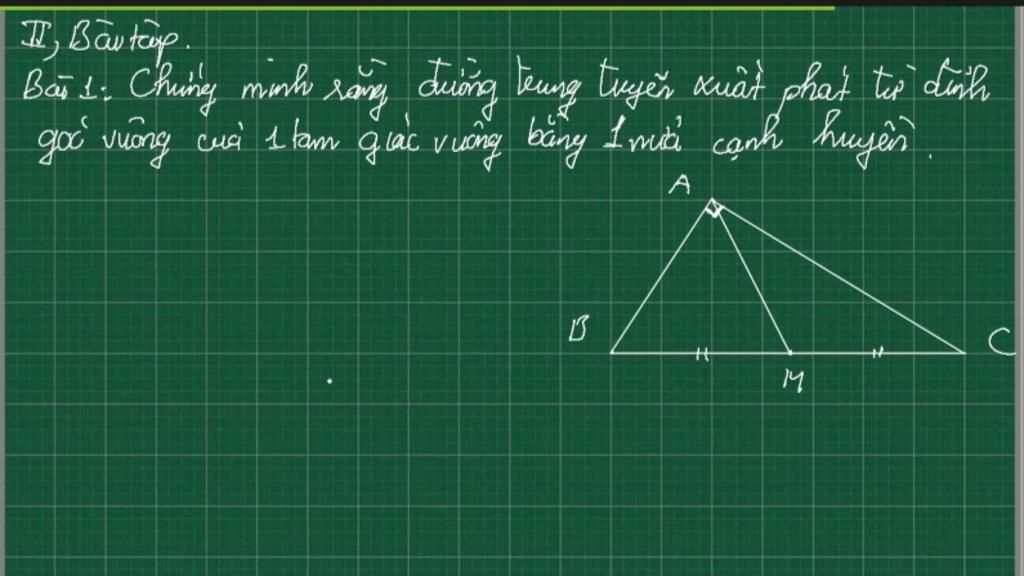 II, Bài tập.
Bài 1: Chứng minh rằng đường trung tuyến xuất phát từ đỉnh
góc vuông của 1 tam giác vuông bằng 1 nửa cạnh huyền.
A
B
C
M